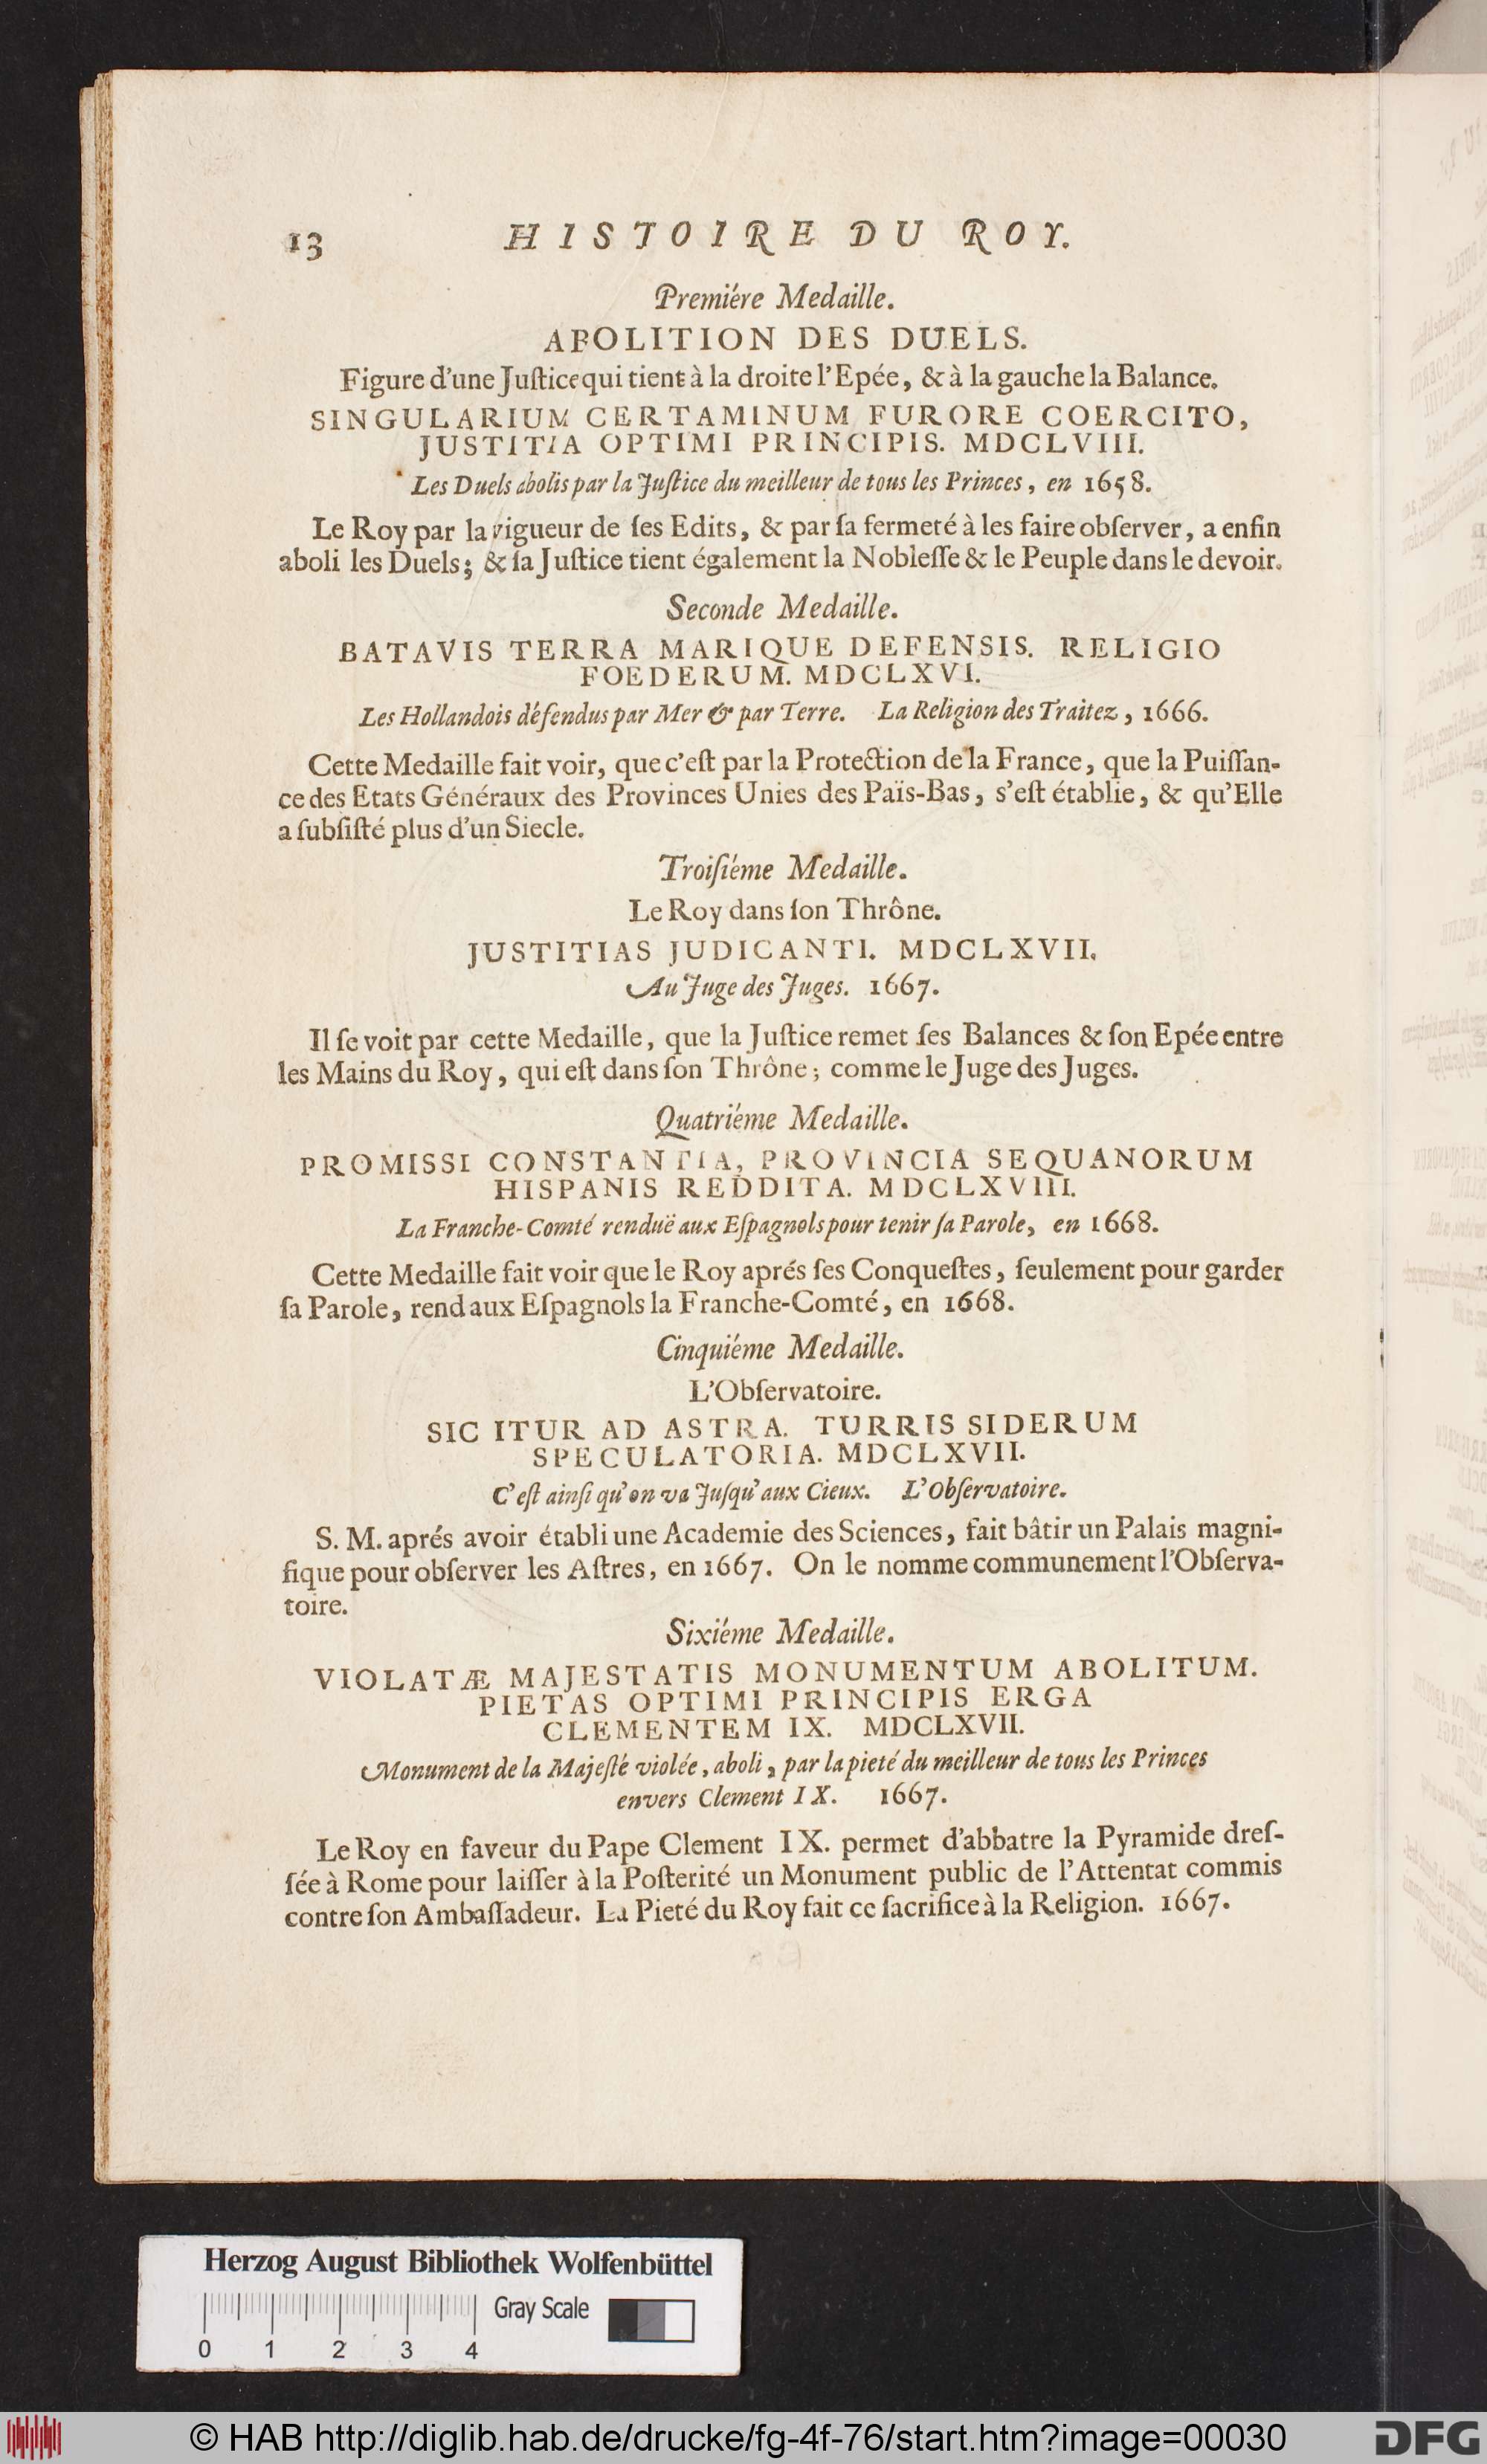 13 HISTOIRE DU ROY.
Premiére Medaille.
ABOLITION DES DUELS.
Figure d'une Juſtice qui tient à la droite l'Epée, & à la gauche la Balance.
SINGULARIUM CERTAMINUM FURORE COERCITO,
JUSTITIA OPTIMI PRINCIPIS. MDCLVIII.
Les Duels abolis par la Juſtice du meilleur de tous les Princes, en 1658.
Le Roy par la vigueur de ſes Edits, & par ſa fermeté à les faire obſerver, a enfin
aboli les Duels; & ſa Juſtice tient également la Nobleſſe & le Peuple dans le devoir.
Seconde Medaille.
BATAVIS TERRA MARIQUE DEFENSIS. RELIGIO
FOEDERUM. MDCLXVI.
Les Hollandois défendus par Mer & par Terre. La Religion des Traitez, 1666.
Cette Medaille fait voir, que c'eſt par la Protection de la France, que la Puiſſan-
ce des Etats Généraux des Provinces Unies des Païs-Bas, s'eſt établie, & qu'Elle
a ſubſiſté plus d'un Siecle.
Troiſiéme Medaille.
Le Roy dans ſon Thrône.
JUSTITIAS JUDICANTI. MDCLXVII.
Au Juge des Juges. 1667.
Il ſe voit par cette Medaille, que la Juſtice remet ſes Balances & ſon Epée entre
les Mains du Roy, qui eſt dans ſon Thrône; comme le Juge des Juges.
Quatriéme Medaille.
PROMISSI CONSTANTIA, PROVINCIA SEQUANORUM
HISPANIS REDDITA. MDCLXVIII.
La Franche-Comté renduë aux Eſpagnols pour tenir ſa Parole, en 1668.
Cette Medaille fait voir que le Roy aprés ſes Conqueſtes, ſeulement pour garder
ſa Parole, rend aux Eſpagnols la Franche-Comté, en 1668.
Cinquiéme Medaille.
L'Obſervatoire.
SIC ITUR AD ASTRA. TURRIS SIDERUM
SPECULATORIA. MDCLXVII.
C'eſt ainſi qu'on va Juſqu'aux Cieux. L'Obſervatoire.
S. M. aprés avoir établi une Academie des Sciences, fait bâtir un Palais magni-
fique pour obſerver les Aſtres, en 1667. On le nomme communement l'Obſerva-
toire.
Sixiéme Medaille.
VIOLATÆ MAJESTATIS MONUMENTUM ABOLITUM.
PIETAS OPTIMI PRINCIPIS ERGA
CLEMENTEM IX. MDCLXVII.
Monument de la Majeſté violée, aboli, par la pieté du meilleur de tous les Princes
envers Clement IX. 1667.
Le Roy en faveur du Pape Clement IX. permet d'abbatre la Pyramide dreſ-
ſée à Rome pour laiſſer à la Poſterité un Monument public de l'Attentat commis
contre ſon Ambaſſadeur. La Pieté du Roy fait ce ſacrifice à la Religion. 1667.
Herzog August Bibliothek Wolfenbüttel
Gray Scale
0 1 2 3 4
© HAB http://diglib.hab.de/drucke/fg-4f-76/start.htm?image=00030
DFG